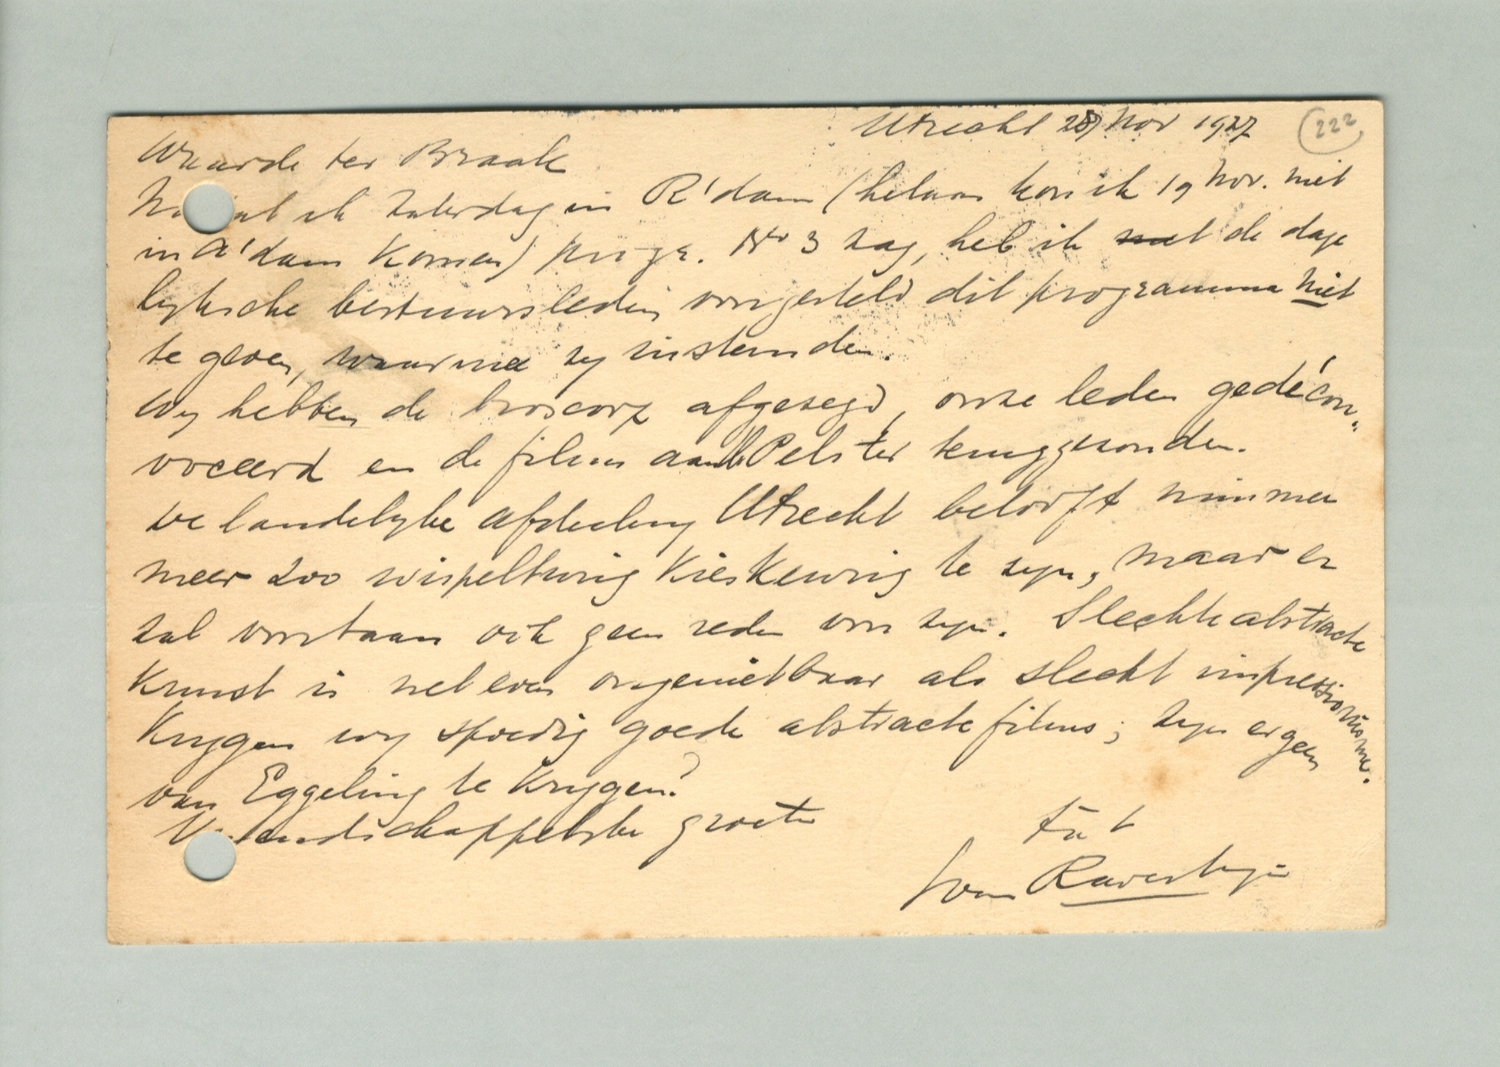 Utrecht 28 Nov 1927
222
Waarde ter Braak
Nadat ik Zaterdag in R'dam (helaas kon ik 19 Nov. niet
in A'dam komen) progr. No 3 zag, heb ik de dage
lyksche bestuursleden voorgesteld dit programma niet
te geven, waarmee zy instemden.
Wy hebben de bioscoop afgezegd, onze leden gedécon-
voceerd en de films aan Pelster teruggezonden.
De landelyke afdeeling Utrecht belooft nimmer
meer zoo wispelturig kieskeurig te zyn, maar er
zal voortaan ook geen reden voor zyn. Slechte abstracte
kunst is net even ongenietbaar als slecht impressionisme.
Krygen wy spoedig goede abstracte films; zyn er geen
van Eggeling te krygen?
Vriendschappelyke groeten
t.à t.
van Ravesteyn